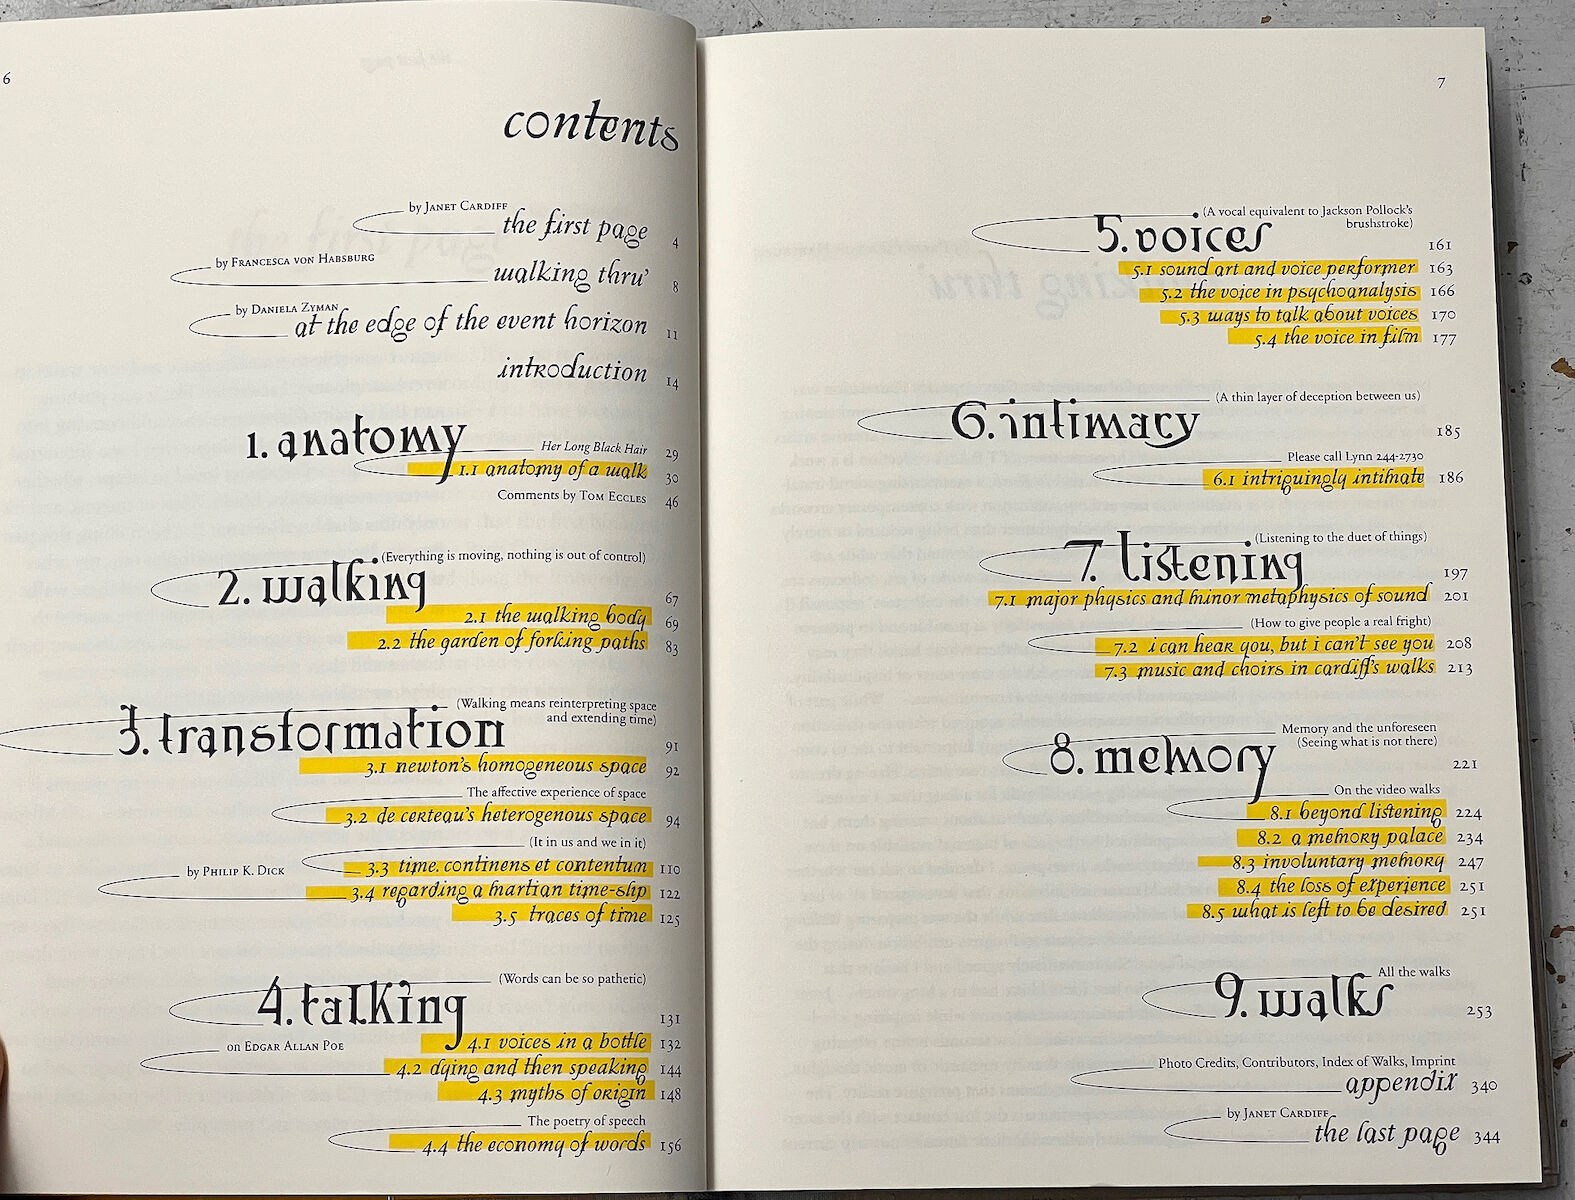 6
contents
by Janet Cardiff
the first page 4
by Francesca von Habsburg
walking thru' 8
by Daniela Zyman
at the edge of the event horizon 11
introduction 14
1. anatomy
Her Long Black Hair 29
1.1 anatomy of a walk 30
Comments by Tom Eccles 46
(Everything is moving, nothing is out of control)
2. walking 67
2.1 the walking body 69
2.2 the garden of forking paths 83
(Walking means reinterpreting space
and extending time)
3. transformation 91
3.1 newton's homogeneous space 92
The affective experience of space
3.2 de certeau's heterogenous space 94
(It in us and we in it)
3.3 time. continens et contentum 110
by Philip K. Dick
3.4 regarding a martian time-slip 122
3.5 traces of time 125
(Words can be so pathetic)
4. talking 131
4.1 voices in a bottle 132
on Edgar Allan Poe
4.2 dying and then speaking 144
4.3 myths of origin 148
The poetry of speech
4.4 the economy of words 156
7
(A vocal equivalent to Jackson Pollock's
brushstroke)
5. voices 161
5.1 sound art and voice performer 163
5.2 the voice in psychoanalysis 166
5.3 ways to talk about voices 170
5.4 the voice in film 177
(A thin layer of deception between us)
6. intimacy 185
Please call Lynn 244-2730
6.1 intriguingly intimate 186
(Listening to the duet of things)
7. listening 197
7.1 major physics and minor metaphysics of sound 201
(How to give people a real fright)
7.2 i can hear you, but i can't see you 208
7.3 music and choirs in cardiff's walks 213
Memory and the unforeseen
(Seeing what is not there)
8. memory 221
On the video walks
8.1 beyond listening 224
8.2 a memory palace 234
8.3 involuntary memory 247
8.4 the loss of experience 251
8.5 what is left to be desired 251
All the walks
9. walks 253
Photo Credits, Contributors, Index of Walks, Imprint
appendix 340
by Janet Cardiff
the last page 344